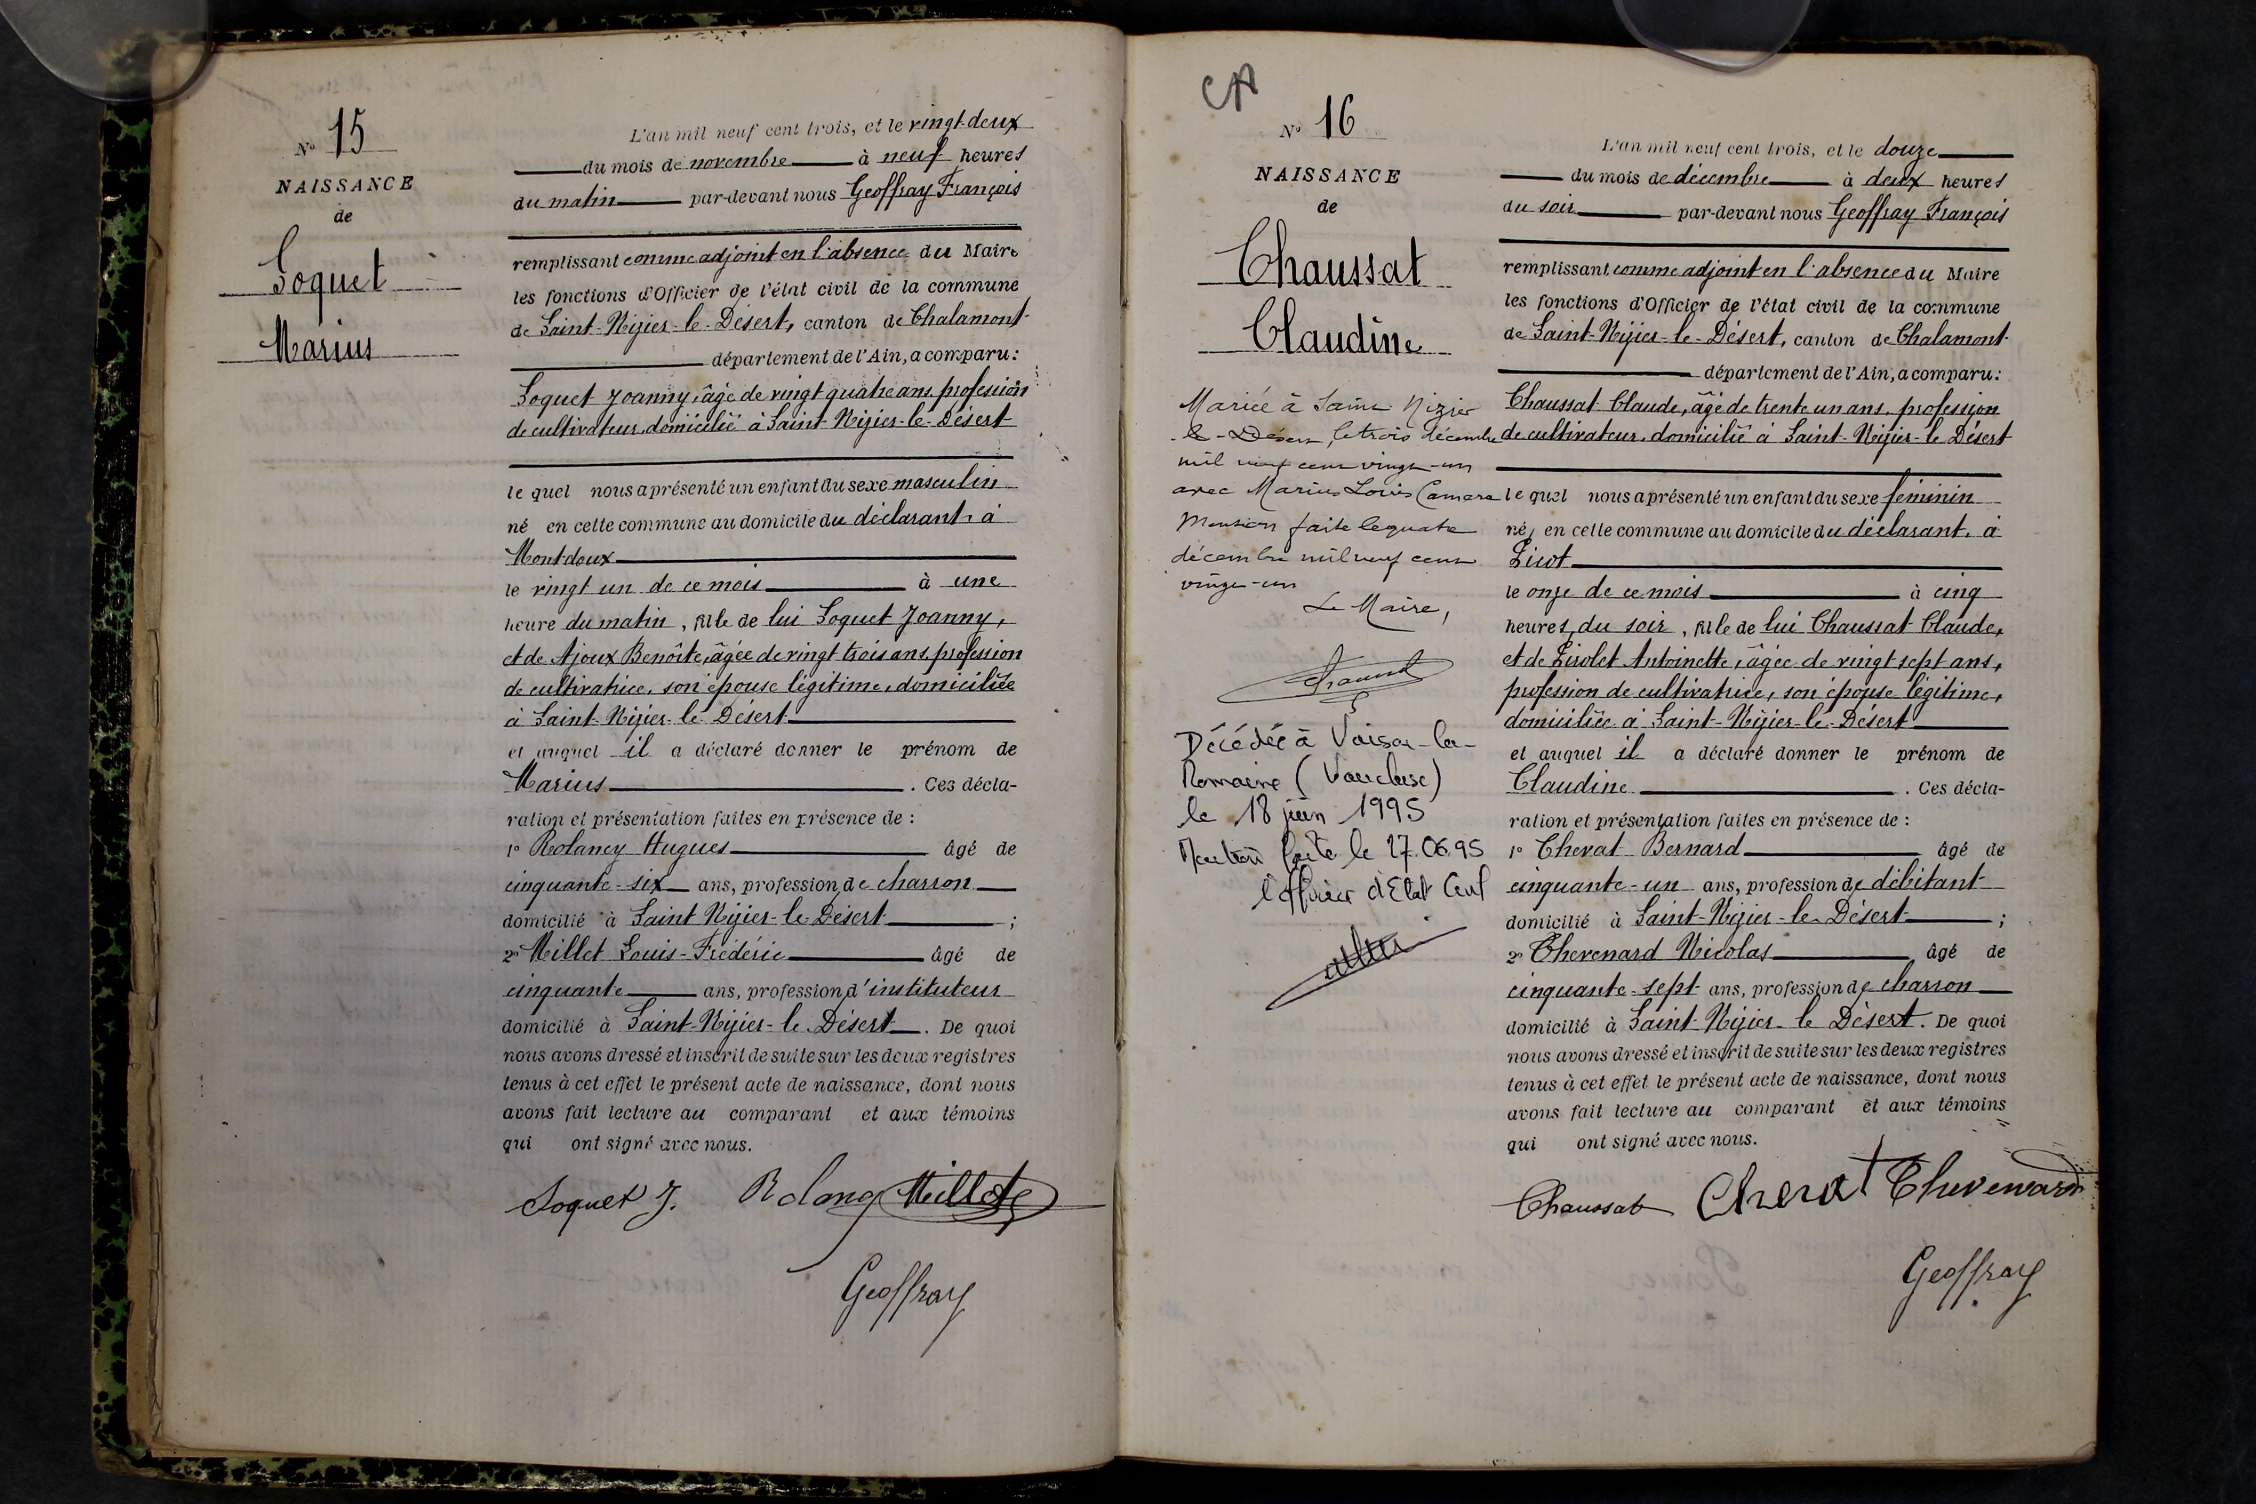 N° 15
NAISSANCE
de
Soquet
Marius
L'an mil neuf cent trois, et le vingt-deux
du mois de novembre à neuf heures
du matin par-devant nous Geoffray François
remplissant comme adjoint en l'absence du Maire
les fonctions d'Officier de l'état civil de la commune
de Saint-Nizier-le-Désert, canton de Chalamont
département de l'Ain, a comparu :
Soquet Joanny, âgé de vingt quatre ans, profession
de cultivateur, domicilié à Saint-Nizier-le-Désert
le quel nous a présenté un enfant du sexe masculin
né en cette commune au domicile du déclarant, à
Montdoux
le vingt un de ce mois à une
heure du matin, fils de lui Soquet Joanny,
et de Ajoux Benoîte, âgée de vingt trois ans, profession
de cultivatrice, son épouse légitime, domiciliée
à Saint-Nizier-le-Désert
et auquel il a déclaré donner le prénom de
Marius . Ces décla-
ration et présentation faites en présence de :
1° Rolancy Hugues âgé de
cinquante-six ans, profession de charron
domicilié à Saint Nizier-le-Désert ;
2° Millet Louis-Frédéric âgé de
cinquante ans, profession d'instituteur
domicilié à Saint-Nizier-le-Désert. De quoi
nous avons dressé et inscrit de suite sur les deux registres
tenus à cet effet le présent acte de naissance, dont nous
avons fait lecture au comparant et aux témoins
qui ont signé avec nous.
Soquet J. Rolancy Millet
Geoffray
N° 16
NAISSANCE
de
Chaussat
Claudine
Mariée à Saint Nizier
-le-Désert, le trois décembre
mil neuf cent vingt-un
avec Marius Louis Camara
Mention faite le quatre
décembre mil neuf cent
vingt-un
Le Maire,
Décédée à Vaison-la-
Romaine (Vaucluse)
le 18 juin 1995
Mention faite le 27.06.95
l'officier d'Etat Civil
L'an mil neuf cent trois, et le douze
du mois de décembre à deux heures
du soir par-devant nous Geoffray François
remplissant comme adjoint en l'absence du Maire
les fonctions d'Officier de l'état civil de la commune
de Saint-Nizier-le-Désert, canton de Chalamont
département de l'Ain, a comparu :
Chaussat Claude, âgé de trente un ans, profession
de cultivateur, domicilié à Saint-Nizier-le Désert
le quel nous a présenté un enfant du sexe féminin
né, en cette commune au domicile du déclarant, à
Licot
le onze de ce mois à cinq
heures du soir, fille de lui Chaussat Claude,
et de Livolet Antoinette, âgée de vingt sept ans,
profession de cultivatrice, son épouse légitime,
domiciliée à Saint-Nizier-le-Désert
et auquel il a déclaré donner le prénom de
Claudine . Ces décla-
ration et présentation faites en présence de :
1° Chevat Bernard âgé de
cinquante-un ans, profession de débitant
domicilié à Saint-Nizier-le-Désert ;
2° Thevenard Nicolas âgé de
cinquante-sept ans, profession de charron
domicilié à Saint-Nizier-le Désert. De quoi
nous avons dressé et inscrit de suite sur les deux registres
tenus à cet effet le présent acte de naissance, dont nous
avons fait lecture au comparant et aux témoins
qui ont signé avec nous.
Chaussat Chevat Thevenard
Geoffray